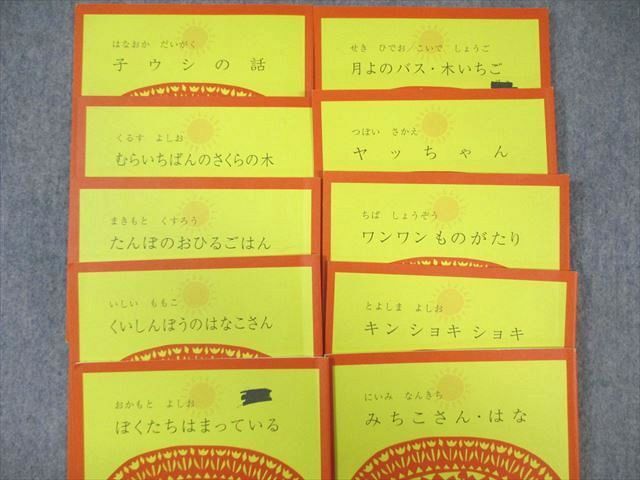 はなおか だいがく
子ウシの話
くるす よしお
むらいちばんのさくらの木
まきもと くすろう
たんぼのおひるごはん
いしい ももこ
くいしんぼうのはなこさん
おかもと よしお
ぼくたちはまっている
せき ひでお/こいで しょうご
月よのバス・木いちご
つぼい さかえ
ヤッちゃん
ちば しょうぞう
ワンワンものがたり
とよしま よしお
キンショキショキ
にいみ なんきち
みちこさん・はな